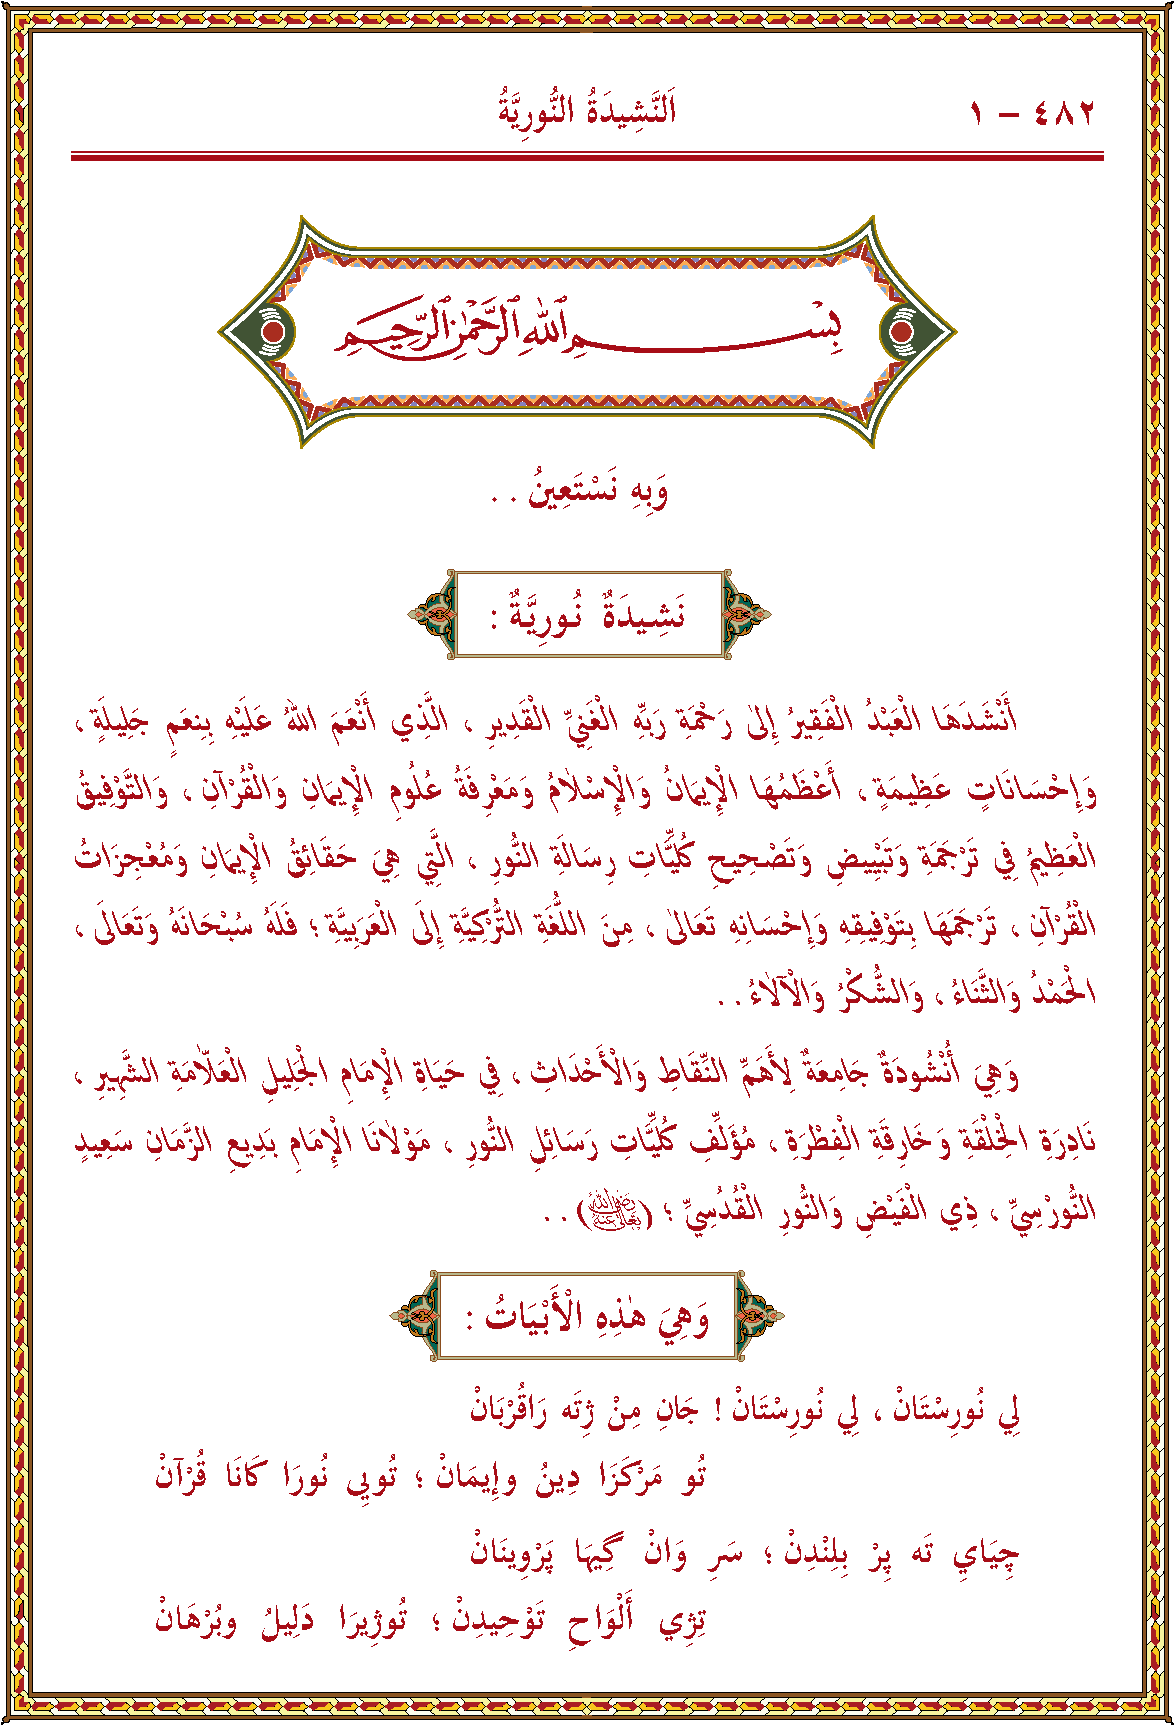 ٤٨٢ – ١
اَلنَّشِيدَةُ النُّورِيَّةُ
بِسْمِ اللهِ الرَّحْمٰنِ الرَّحِيمِ
وَبِهِ نَسْتَعِينُ . .
نَشِيدَةٌ نُورِيَّةٌ :
أَنْشَدَهَا الْعَبْدُ الْفَقِيرُ إِلىٰ رَحْمَةِ رَبِّهِ الْغَنِيِّ الْقَدِيرِ ، الَّذِي أَنْعَمَ اللهُ عَلَيْهِ بِنِعَمٍ جَلِيلَةٍ ،
وَإِحْسَانَاتٍ عَظِيمَةٍ ، أَعْظَمُهَا الْإِيمَانُ وَالْإِسْلَامُ وَمَعْرِفَةُ عُلُومِ الْإِيمَانِ وَالْقُرْآنِ ، وَالتَّوْفِيقُ
الْعَظِيمُ فِي تَرْجَمَةِ وَتَبْيِيضِ وَتَصْحِيحِ كُلِّيَّاتِ رِسَالَةِ النُّورِ ، الَّتِي هِيَ حَقَائِقُ الْإِيمَانِ وَمُعْجِزَاتُ
الْقُرْآنِ ، تَرْجَمَهَا بِتَوْفِيقِهِ وَإِحْسَانِهِ تَعَالىٰ ، مِنَ اللُّغَةِ التُّرْكِيَّةِ إِلَى الْعَرَبِيَّةِ ؛ فَلَهُ سُبْحَانَهُ وَتَعَالَى ،
الْحَمْدُ وَالثَّنَاءُ ، وَالشُّكْرُ وَالْآلَاءُ . .
وَهِيَ أُنْشُودَةٌ جَامِعَةٌ لِأَهَمِّ النِّقَاطِ وَالْأَحْدَاثِ ، فِي حَيَاةِ الْإِمَامِ الْجَلِيلِ الْعَلَّامَةِ الشَّهِيرِ ،
نَادِرَةِ الْخِلْقَةِ وَخَارِقَةِ الْفِطْرَةِ ، مُؤَلِّفِ كُلِّيَّاتِ رَسَائِلِ النُّورِ ، مَوْلَانَا الْإِمَامِ بَدِيعِ الزَّمَانِ سَعِيدٍ
النُّورْسِيِّ ، ذِي الْفَيْضِ وَالنُّورِ الْقُدُسِيِّ ؛ (رَضِيَ اللهُ تَعَالَى عَنْهُ) . .
وَهِيَ هٰذِهِ الْأَبْيَاتُ :
لِي نُورِسْتَانْ ، لِي نُورِسْتَانْ ! جَانِ مِنْ ژِتَه رَاقُرْبَانْ
تُو مَرْكَزَا دِينُ وإِيمَانْ ؛ تُويِى نُورَا كَانَا قُرْآنْ
چِيَايِ تَه پِرْ بِلِنْدِنْ ؛ سَرِ وَانْ گِيهَا پَرْوِينَانْ
تِژِي أَلْوَاحِ تَوْحِيدِنْ ؛ تُوژِيرَا دَلِيلُ وبُرْهَانْ